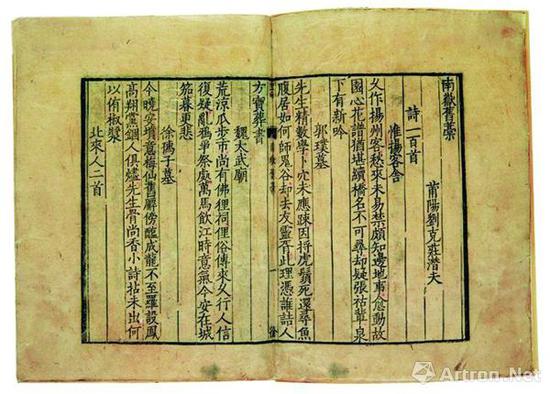 南嶽舊藳
莆陽劉克莊潛夫
詩一百首
惟揚客舍
久作揚州客愁來未易禁頗知邊地事愈動故
園心花譜猶堪續橋名不可尋却疑張祜輩泉
下有新吟
郭璞墓
先生精數學卜穴未應疎因捋虎鬚死還尋魚
腹居如何師鬼谷却去友靈胥此理憑誰詰人
方寶葬書
魏太武廟
荒凉瓜步市尚有佛狸祠俚俗傳來久行人信
復疑亂鵶爭祭處萬馬飲江時意氣今安在城
笳暮更悲
徐孺子墓
今曉安墳意梅仙舊廨傍醢成龍不至羅設鳳
高翔黨錮人俱燼先生骨尚香小詩拈未出何
以侑椒漿
北來人二首
Artron.Net